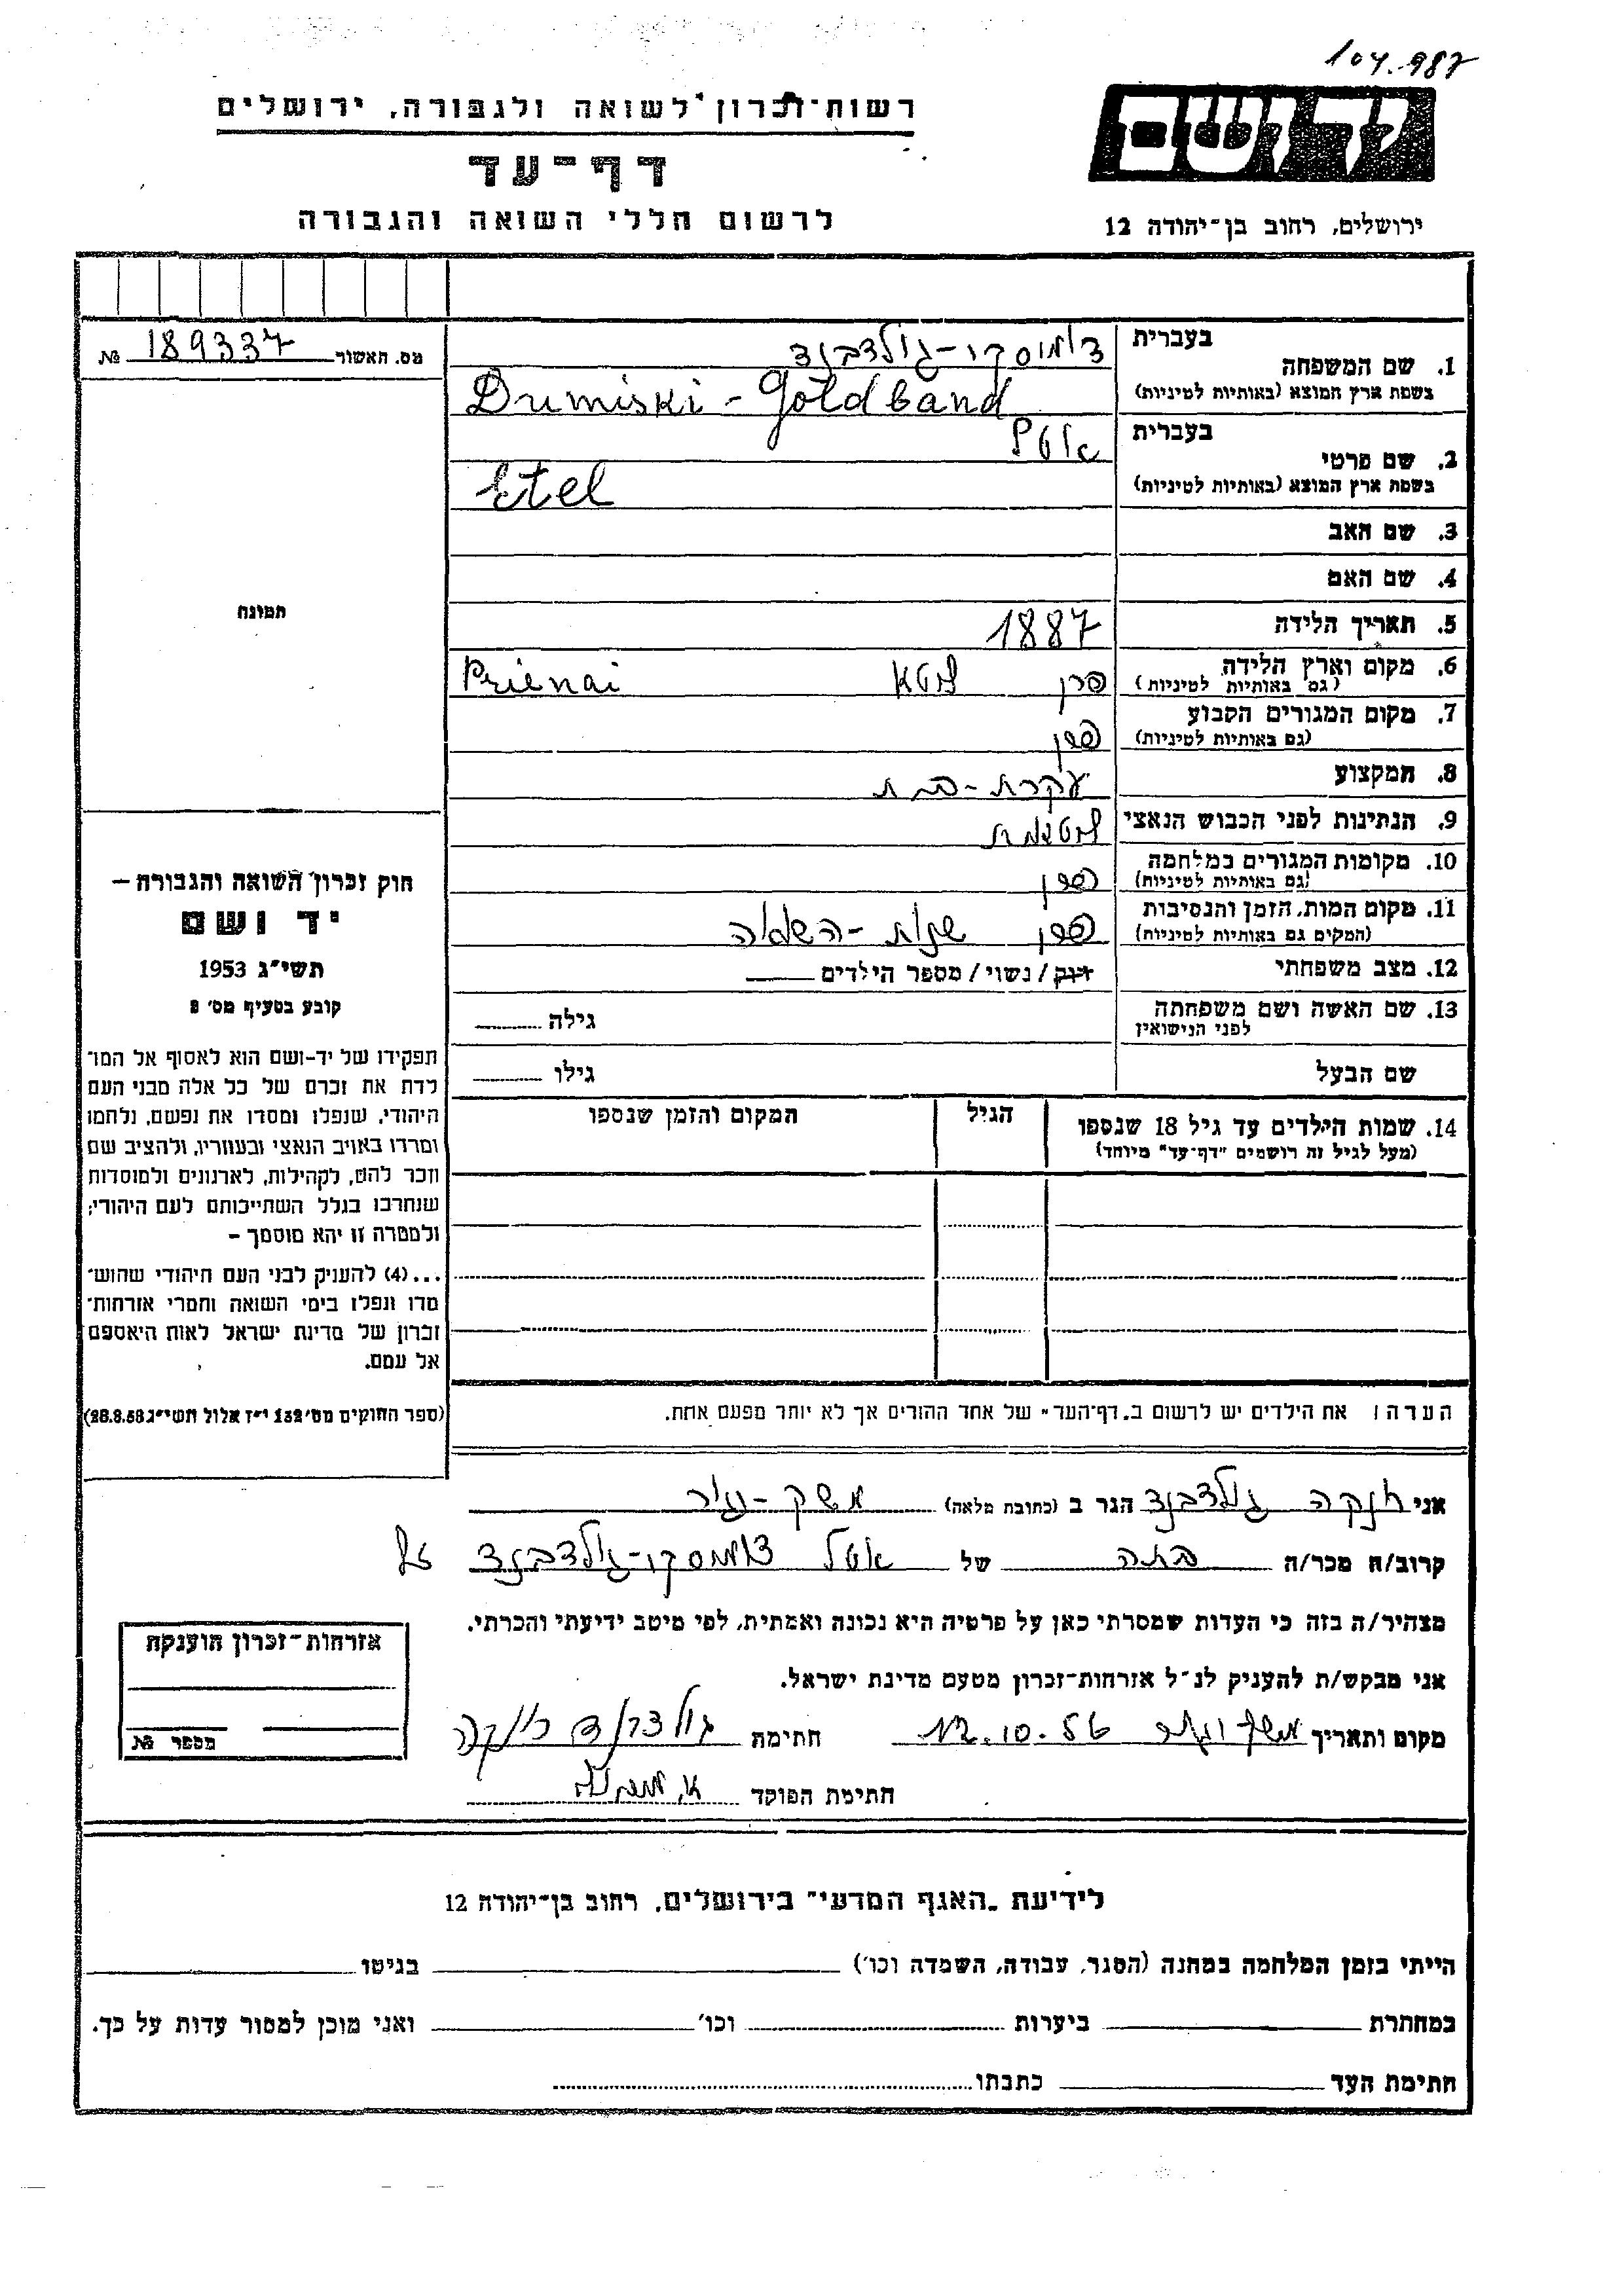 104.987
יד ושם
רשות־זכרון לשואה ולגבורה, ירושלים
דף־עד
לרשום חללי השואה והגבורה
ירושלים, רחוב בן־יהודה 12
מס. האשור 189337 №
בעברית דומוסקי-גולדבנד
1. שם המשפחה
בשפת ארץ המוצא (באותיות לטיניות) Dumiski - Goldband
בעברית אטל
2. שם פרטי
בשפת ארץ המוצא (באותיות לטיניות) Etel
3. שם האב
4. שם האם
5. תאריך הלידה 1887
6. מקום וארץ הלידה פרן ליטא Prienai
(גם באותיות לטיניות)
7. מקום המגורים הקבוע פרן
(גם באותיות לטיניות)
8. המקצוע עקרת-בית
9. הנתינות לפני הכבוש הנאצי ליטאית
10. מקומות המגורים במלחמה פרן
(גם באותיות לטיניות)
11. מקום המות, הזמן והנסיבות פרן שנות-השואה
(המקום גם באותיות לטיניות)
12. מצב משפחתי רווק / נשוי / מספר הילדים
13. שם האשה ושם משפחתה
לפני הנישואין גילה
שם הבעל גילו
14. שמות הילדים עד גיל 18 שנספו הגיל המקום והזמן שנספו
(מעל לגיל זה רושמים "דף־עד" מיוחד)
הערה: את הילדים יש לרשום ב„דף־העד" של אחד ההורים אך לא יותר מפעם אחת.
תמונה
חוק זכרון השואה והגבורה –
יד ושם
תשי"ג 1953
קובע בסעיף מס' 2
תפקידו של יד-ושם הוא לאסוף אל המו־
לדת את זכרם של כל אלה מבני העם
היהודי, שנפלו ומסרו את נפשם, נלחמו
ומרדו באויב הנאצי ובעוזריו, ולהציב שם
וזכר להם, לקהילות, לארגונים ולמוסדות
שנחרבו בגלל השתייכותם לעם היהודי;
ולמטרה זו יהא מוסמך –
...(4) להעניק לבני העם היהודי שהוש־
מדו ונפלו בימי השואה והמרי אזרחות־
זכרון של מדינת ישראל לאות היאספם
אל עמם.
(ספר החוקים מס' 132 י"ז אלול תשי"ג 28.8.53)
אני חנקה גולדבנד הגר ב (כתובת מלאה) משק-יגור
קרוב/ה מכר/ה בתה של אטל דומוסקי-גולדבנד
מצהיר/ה בזה כי העדות שמסרתי כאן על פרטיה היא נכונה ואמתית, לפי מיטב ידיעתי והכרתי.
אני מבקש/ת להעניק לנ"ל אזרחות-זכרון מטעם מדינת ישראל.
מקום ותאריך משק יגור 12.10.56 חתימה גולדבנד
חתימת הפוקד
אזרחות-זכרון הוענקה
מספר №
לידיעת „האגף המדעי" בירושלים, רחוב בן־יהודה 12
הייתי בזמן המלחמה במחנה (הסגר, עבודה, השמדה וכו') בגיטו
במחתרת ביערות וכו' ואני מוכן למסור עדות על כך.
חתימת העד כתבתו